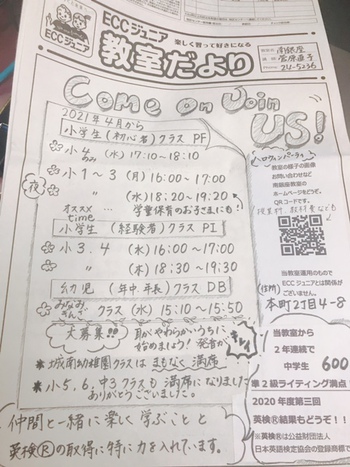 ECCジュニア 楽しく習って好きになる
ECCジュニア
教室だより
南銀座
24-5236
Come on Join
US!
2021年4月から
小学生(初心者)クラス PF
小4 (水)17:10~18:10
小1~3 (月)16:00~17:00
〃 (水)18:20~19:20
オススメ
time
学童保育のおさきまにも!
小学生(経験者)クラス PI
小3.4 (水)16:00~17:00
〃 (木)18:30~19:30
幼児(年中 年長)クラス DB
クラス (水)15:10~15:50
大募集!! 耳がやわらかいうちに
始めましょう! 発音が
* 城南幼稚園クラスはまもなく満席
* 小5,6,中3クラスも満席になりました
ありがとうございました。
仲間と一緒に楽しく学ぶことと
英検Ⓡの取得に特に力を入れています。
教室の様子の画像
お問い合わせなど
南銀座教室の
ホームページをどうぞ。
QRコードです。
当教室運用のもので
ECCジュニアとは関係が
ございません。
(住所)
本町2丁目4-8
当教室から
2年連続で
中学生 600
準2級ライティング満点
2020年度第三回
英検Ⓡ結果もどうぞ!!
※英検Ⓡは公益財団法人
日本英語検定協会の登録商標で